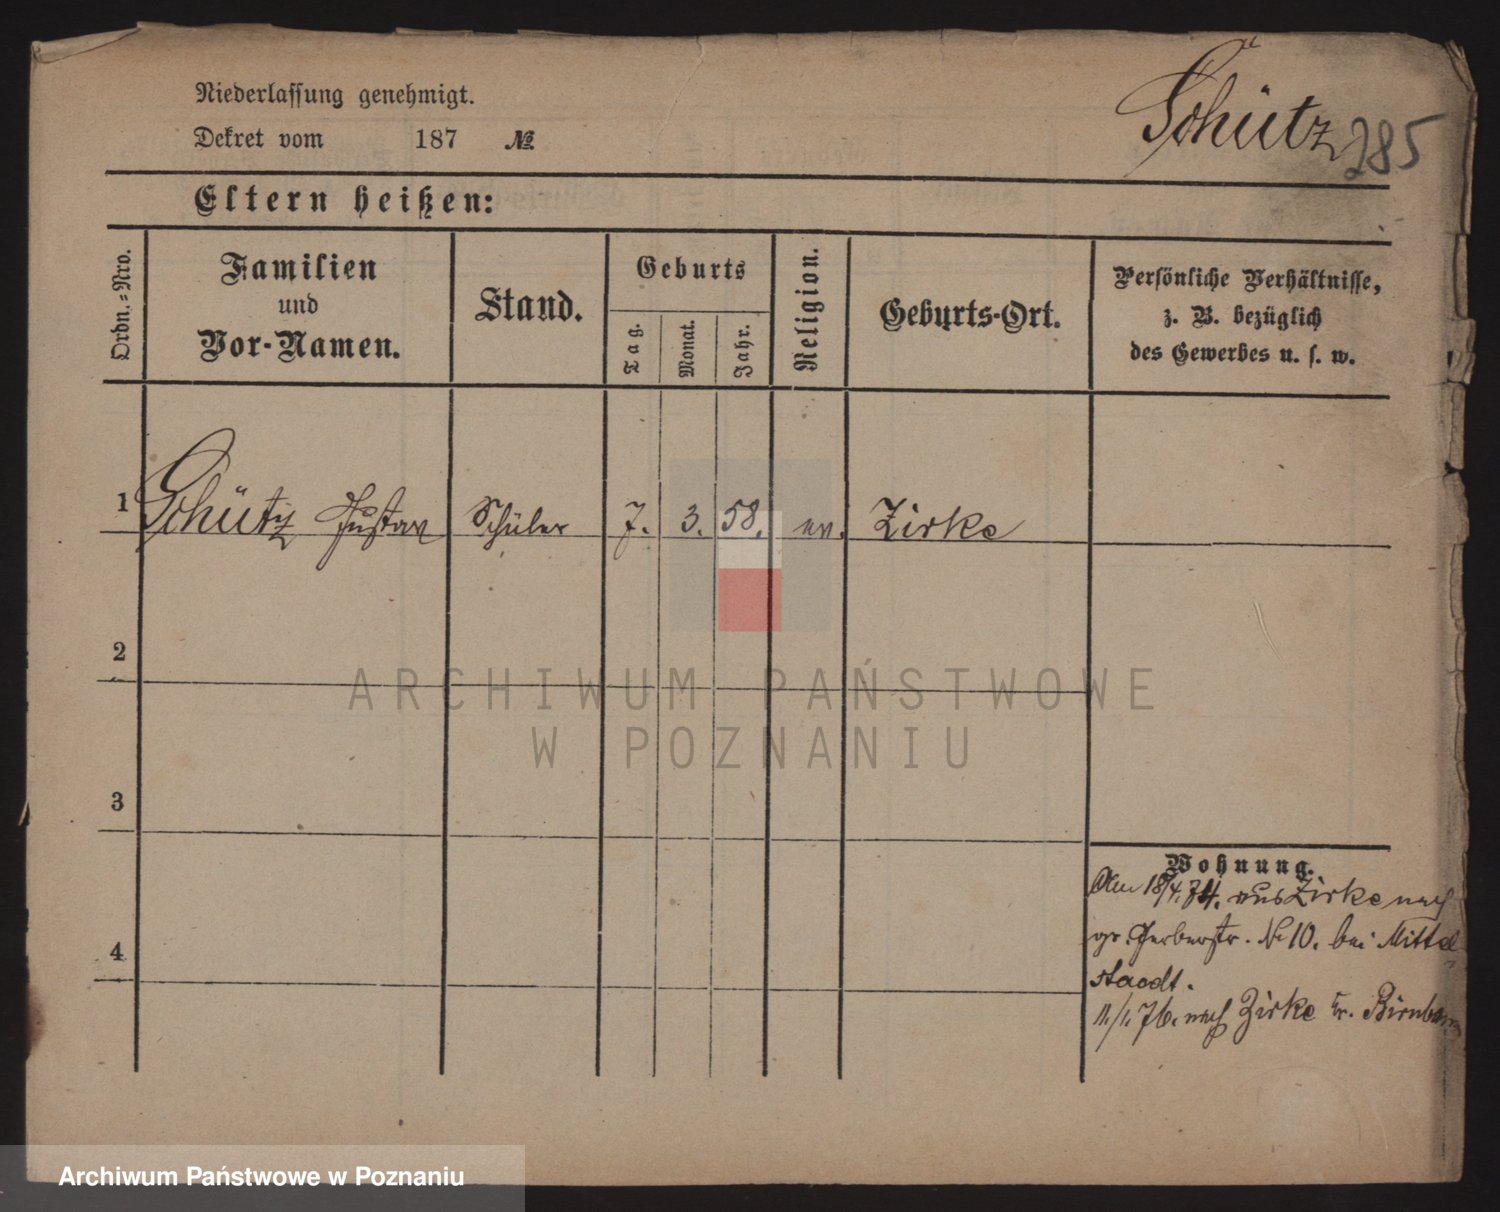 Niederlassung genehmigt.
Dekret vom 187 №
Schütz
285
Eltern heißen:
Ordn.-Nro.
Familien
und
Vor-Namen.
Stand.
Geburts
Tag.
Monat.
Jahr.
Religion.
Geburts-Ort.
Persönliche Verhältnisse,
z. B. bezüglich
des Gewerbes u. s. w.
1 Schütz Gustav Schüler 7. 3. 58. ev. Zirke
2
ARCHIWUM PAŃSTWOWE
W POZNANIU
3
4
Wohnung.
Am 18/4. 74. aus Zirke nach
gr. Gerberstr. № 10. bei Mittel
staedt.
11./1. 76. nach Zirke Kr. Birnbaum
Archiwum Państwowe w Poznaniu